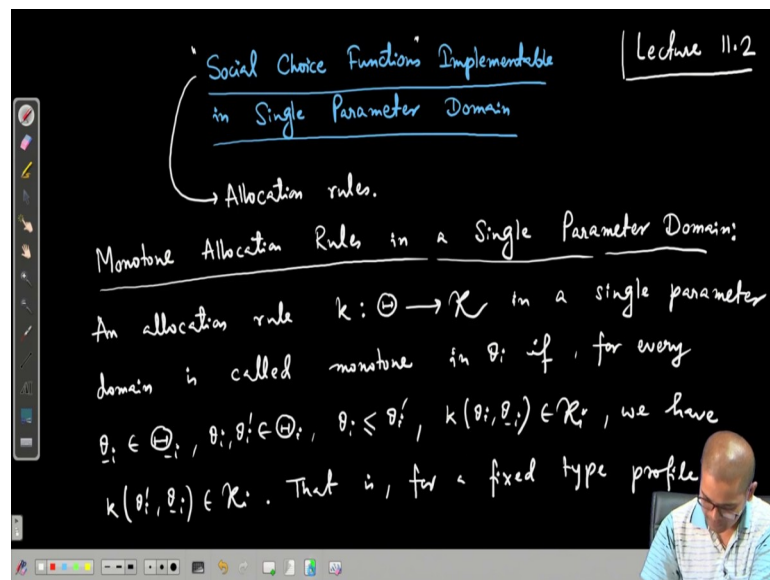 "Social Choice Functions" Implementable
Lecture 11.2
in Single Parameter Domain
→ Allocation rules.
Monotone Allocation Rules in a Single Parameter Domain:
An allocation rule k : Θ → 𝒦 in a single parameter
domain is called monotone in θᵢ if, for every
θ₋ᵢ ∈ Θ₋ᵢ, θᵢ, θᵢ' ∈ Θᵢ, θᵢ ⩽ θᵢ', k(θᵢ, θ₋ᵢ) ∈ 𝒦ᵢ, we have
k(θᵢ', θ₋ᵢ) ∈ 𝒦ᵢ. That is, for a fixed type profile